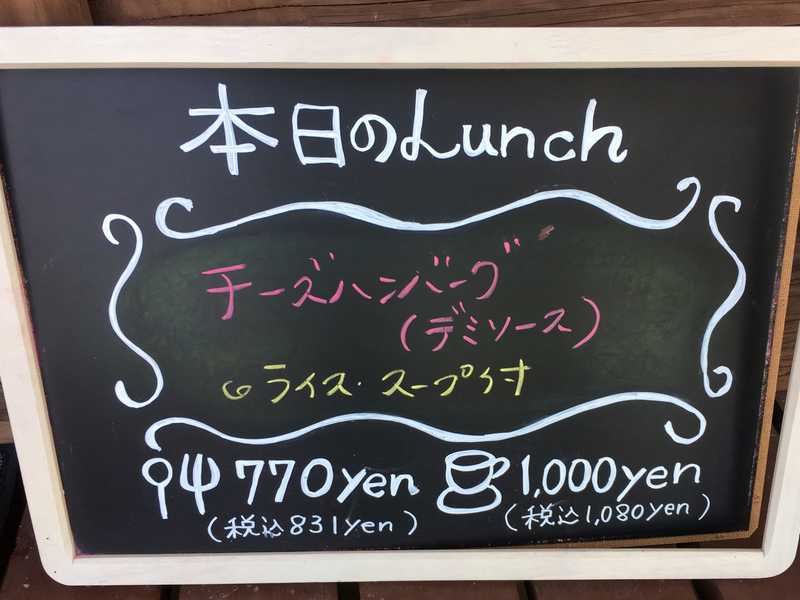 本日のLunch
チーズハンバーグ
(デミソース)
ライス・スープ付
770yen 1,000yen
(税込831yen) (税込1,080yen)